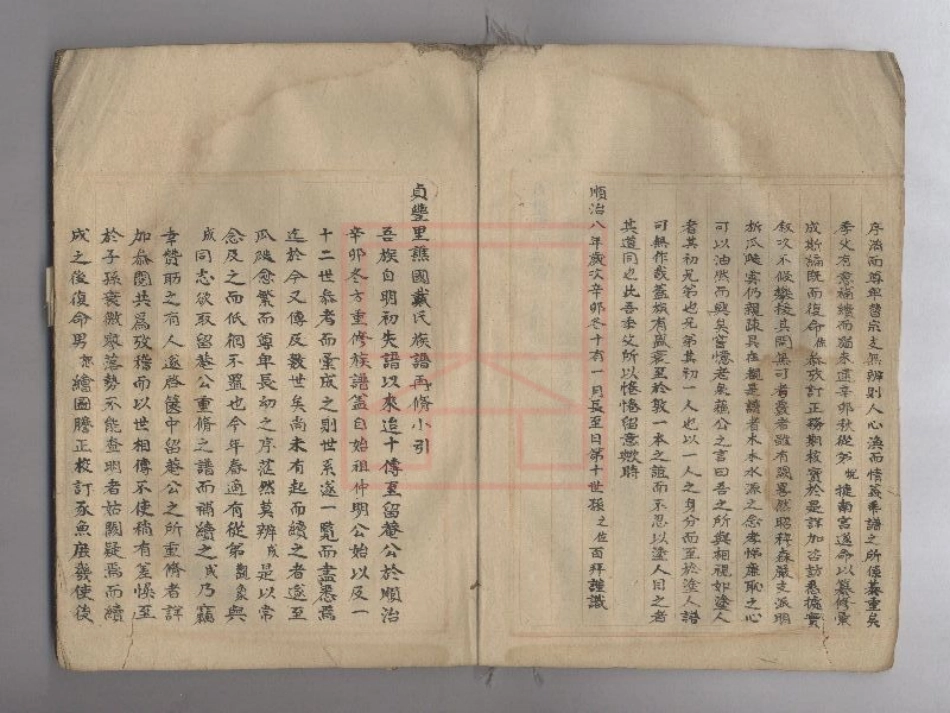 序淆而尊卑瞀宗支無辨則人心渙而情義乖譜之所係綦重矣
季父有意補續而獨來遑辛卯秋從弟悅捷南宮遂命以纂修彙
成斯編既而復命佐恭攷訂正務期核實於是詳加咨訪悉據實
叙次不假攀援其間無可考叢者雖有疏畧然昭穆森嚴支派明
析瓜瓞雲仍親疎具在觀是譜者木本水源之念孝悌廉恥之心
可以油然而興矣嘗憶老泉蘇公之言曰吾之所與相視如塗人
者其初兄弟也兄弟其初一人也以一人之身分而至於塗人譜
可無作哉蓋族有盛衰至於敦一本之誼而不忍以塗人目之者
其道同也此吾季父所以惓惓留意歟時
順治八年歲次辛卯冬十有一月長至日第十世孫之佐百拜謹識
貞豐里譙國戴氏族譜再修小引
吾族自明初失譜以來追十傳至留菴公於順治
辛卯冬方重修族譜蓋自始祖仲明公始以及一
十二世恭考而彙成之則世系遂一覽而盡悉焉
迄於今又傳及數世矣尚未有起而續之者遂至
瓜瓞愈繁而尊卑長幼之序茫然莫辨成是以常
念及之而低徊不置也今年春適有從弟觀象與
成同志欲取留菴公重脩之譜而補續之成乃竊
幸贊助之有人遂啓篋中留菴公之所重脩者詳
加恭閱共為攷稽而以世相傳不使稍有差悞至
於子孫衰微寥落勢不能查明者姑闕疑焉而續
成之後復命男繪圖謄正校訂豕魚庶幾使後